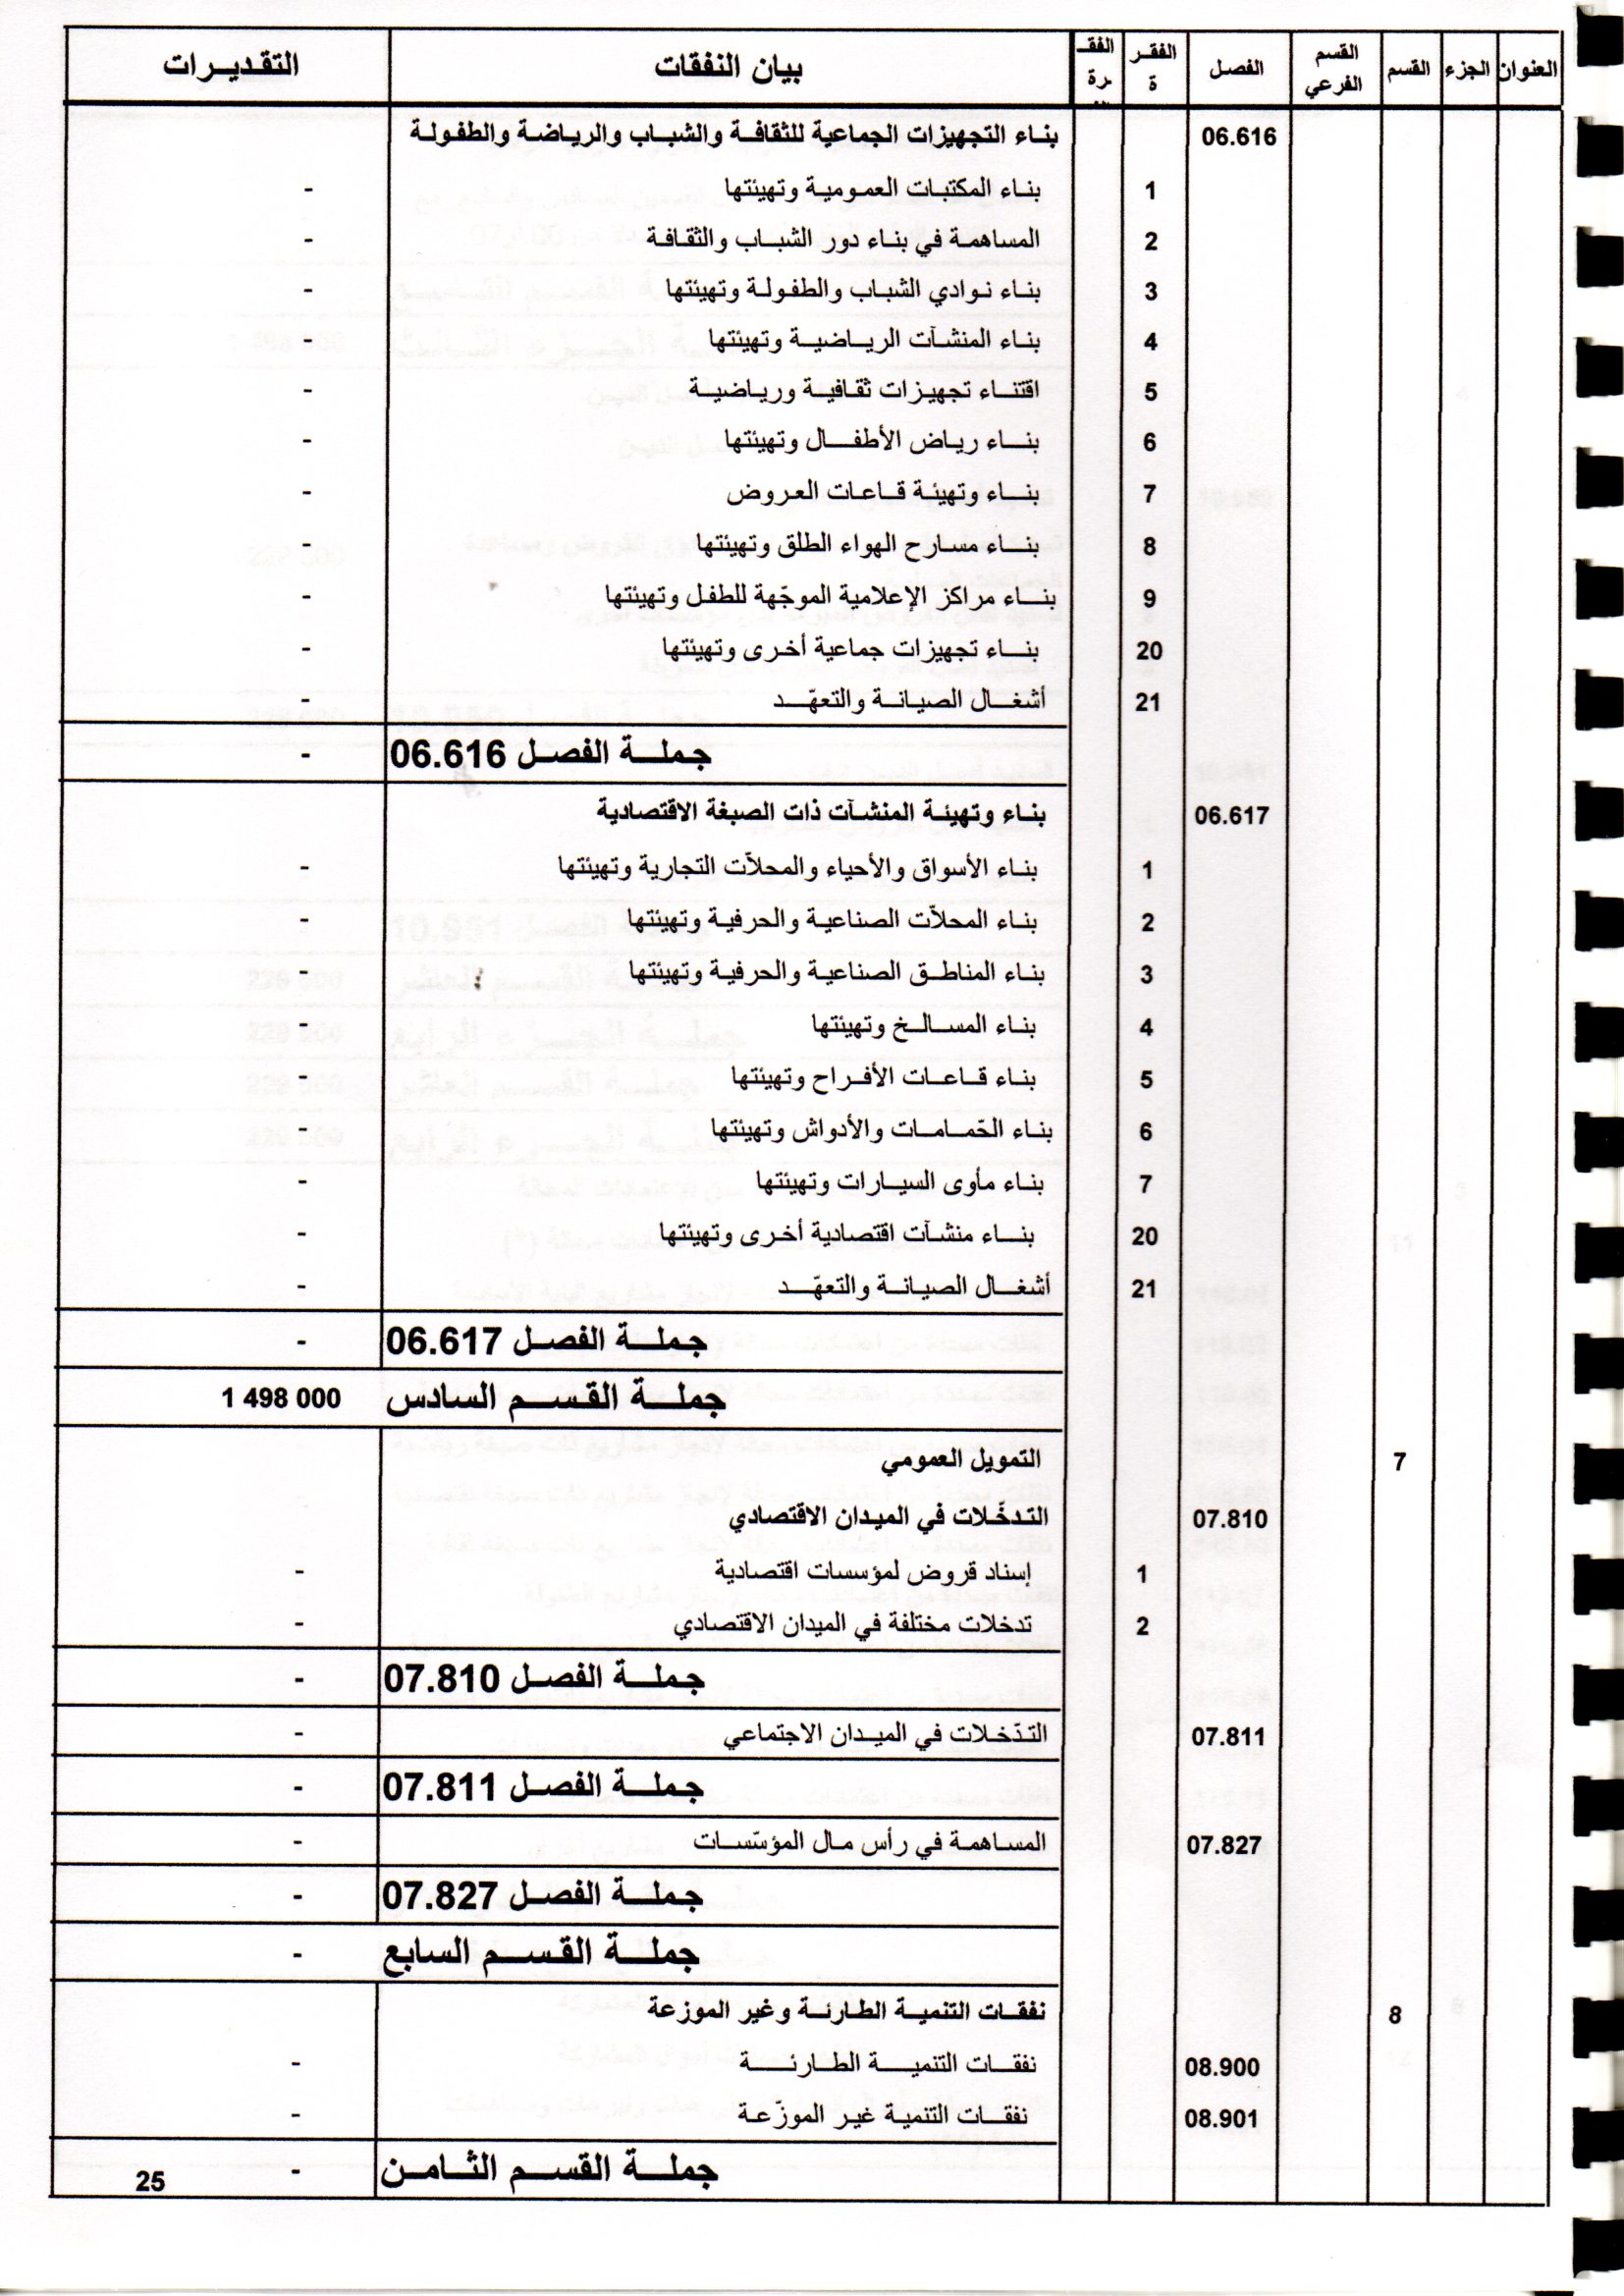 العنوان الجزء القسم القسم الفرعي الفصل الفقرة الفقرة بيان النفقات التقديرات
06.616 بناء التجهيزات الجماعية للثقافة والشباب والرياضة والطفولة
1 بناء المكتبات العمومية وتهيئتها -
2 المساهمة في بناء دور الشباب والثقافة -
3 بناء نوادي الشباب والطفولة وتهيئتها -
4 بناء المنشآت الرياضية وتهيئتها -
5 اقتناء تجهيزات ثقافية ورياضية -
6 بناء رياض الأطفال وتهيئتها -
7 بناء وتهيئة قاعات العروض -
8 بناء مسارح الهواء الطلق وتهيئتها -
9 بناء مراكز الإعلامية الموجّهة للطفل وتهيئتها -
20 بناء تجهيزات جماعية أخرى وتهيئتها -
21 أشغال الصيانة والتعهّد -
جملة الفصل 06.616 -
06.617 بناء وتهيئة المنشآت ذات الصبغة الاقتصادية
1 بناء الأسواق والأحياء والمحلاّت التجارية وتهيئتها -
2 بناء المحلاّت الصناعية والحرفية وتهيئتها -
3 بناء المناطق الصناعية والحرفية وتهيئتها -
4 بناء المسالخ وتهيئتها -
5 بناء قاعات الأفراح وتهيئتها -
6 بناء الحّمامات والأدواش وتهيئتها -
7 بناء مأوى السيارات وتهيئتها -
20 بناء منشآت اقتصادية أخرى وتهيئتها -
21 أشغال الصيانة والتعهّد -
جملة الفصل 06.617 -
جملة القسم السادس 1 498 000
7 التمويل العمومي
07.810 التدخّلات في الميدان الاقتصادي
1 إسناد قروض لمؤسسات اقتصادية -
2 تدخلات مختلفة في الميدان الاقتصادي -
جملة الفصل 07.810 -
07.811 التدّخلات في الميدان الاجتماعي -
جملة الفصل 07.811 -
07.827 المساهمة في رأس مال المؤسّسات -
جملة الفصل 07.827 -
جملة القسم السابع -
8 نفقات التنمية الطارئة وغير الموزعة
08.900 نفقات التنمية الطارئة -
08.901 نفقات التنمية غير الموزّعة -
جملة القسم الثامن -
25